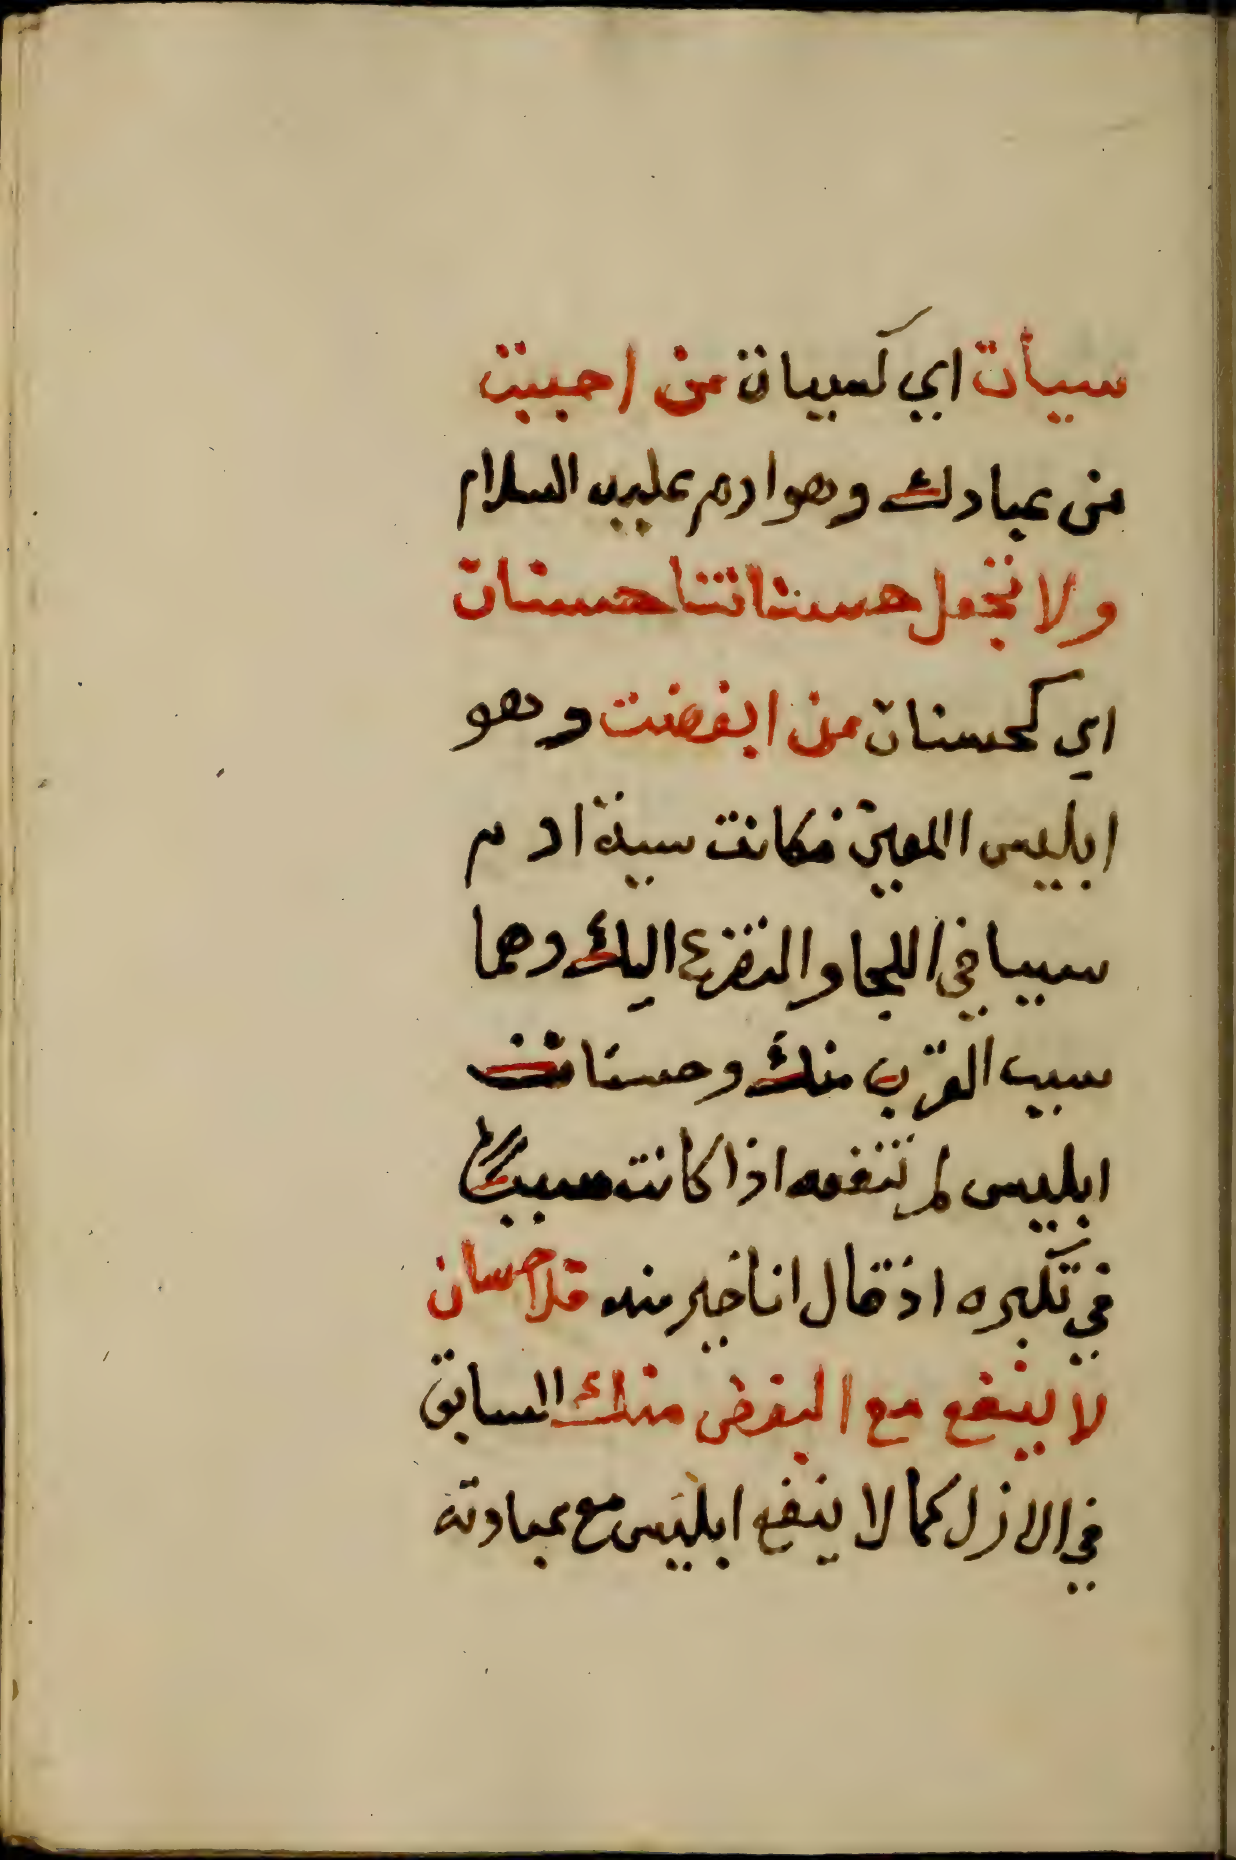 سيأت اي كسيات من احببت
من عبادك وهو ادم عليه السلام
ولا تجعل حسناتنا حسنات
اي كحسنات من ابغضت وهو
ابليس اللعين فكانت سية ادم
سببا في اللجا والتضرع اليك وهما
سبب القرب منك وحسنات
ابليس لم تنفعه اذا كانت سببا
في تكبره اذ قال انا خير منه فلاحسان
لا ينفع مع البغض منك السابق
في الازل كما لا ينفع ابليس مع عبادته